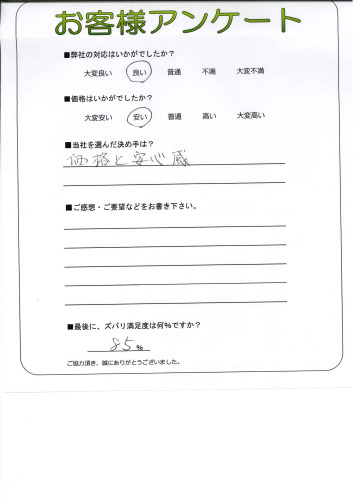 お客様アンケート
■弊社の対応はいかがでしたか？
大変良い 良い 普通 不満 大変不満
■価格はいかがでしたか？
大変安い 安い 普通 高い 大変高い
■当社を選んだ決め手は？
価格と安心感
■ご感想・ご要望などをお書き下さい。
■最後に、ズバリ満足度は何%ですか？
85%
ご協力頂き、誠にありがとうございました。